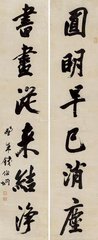 圓明早已消塵
書畫從來結淨
錢伯坰